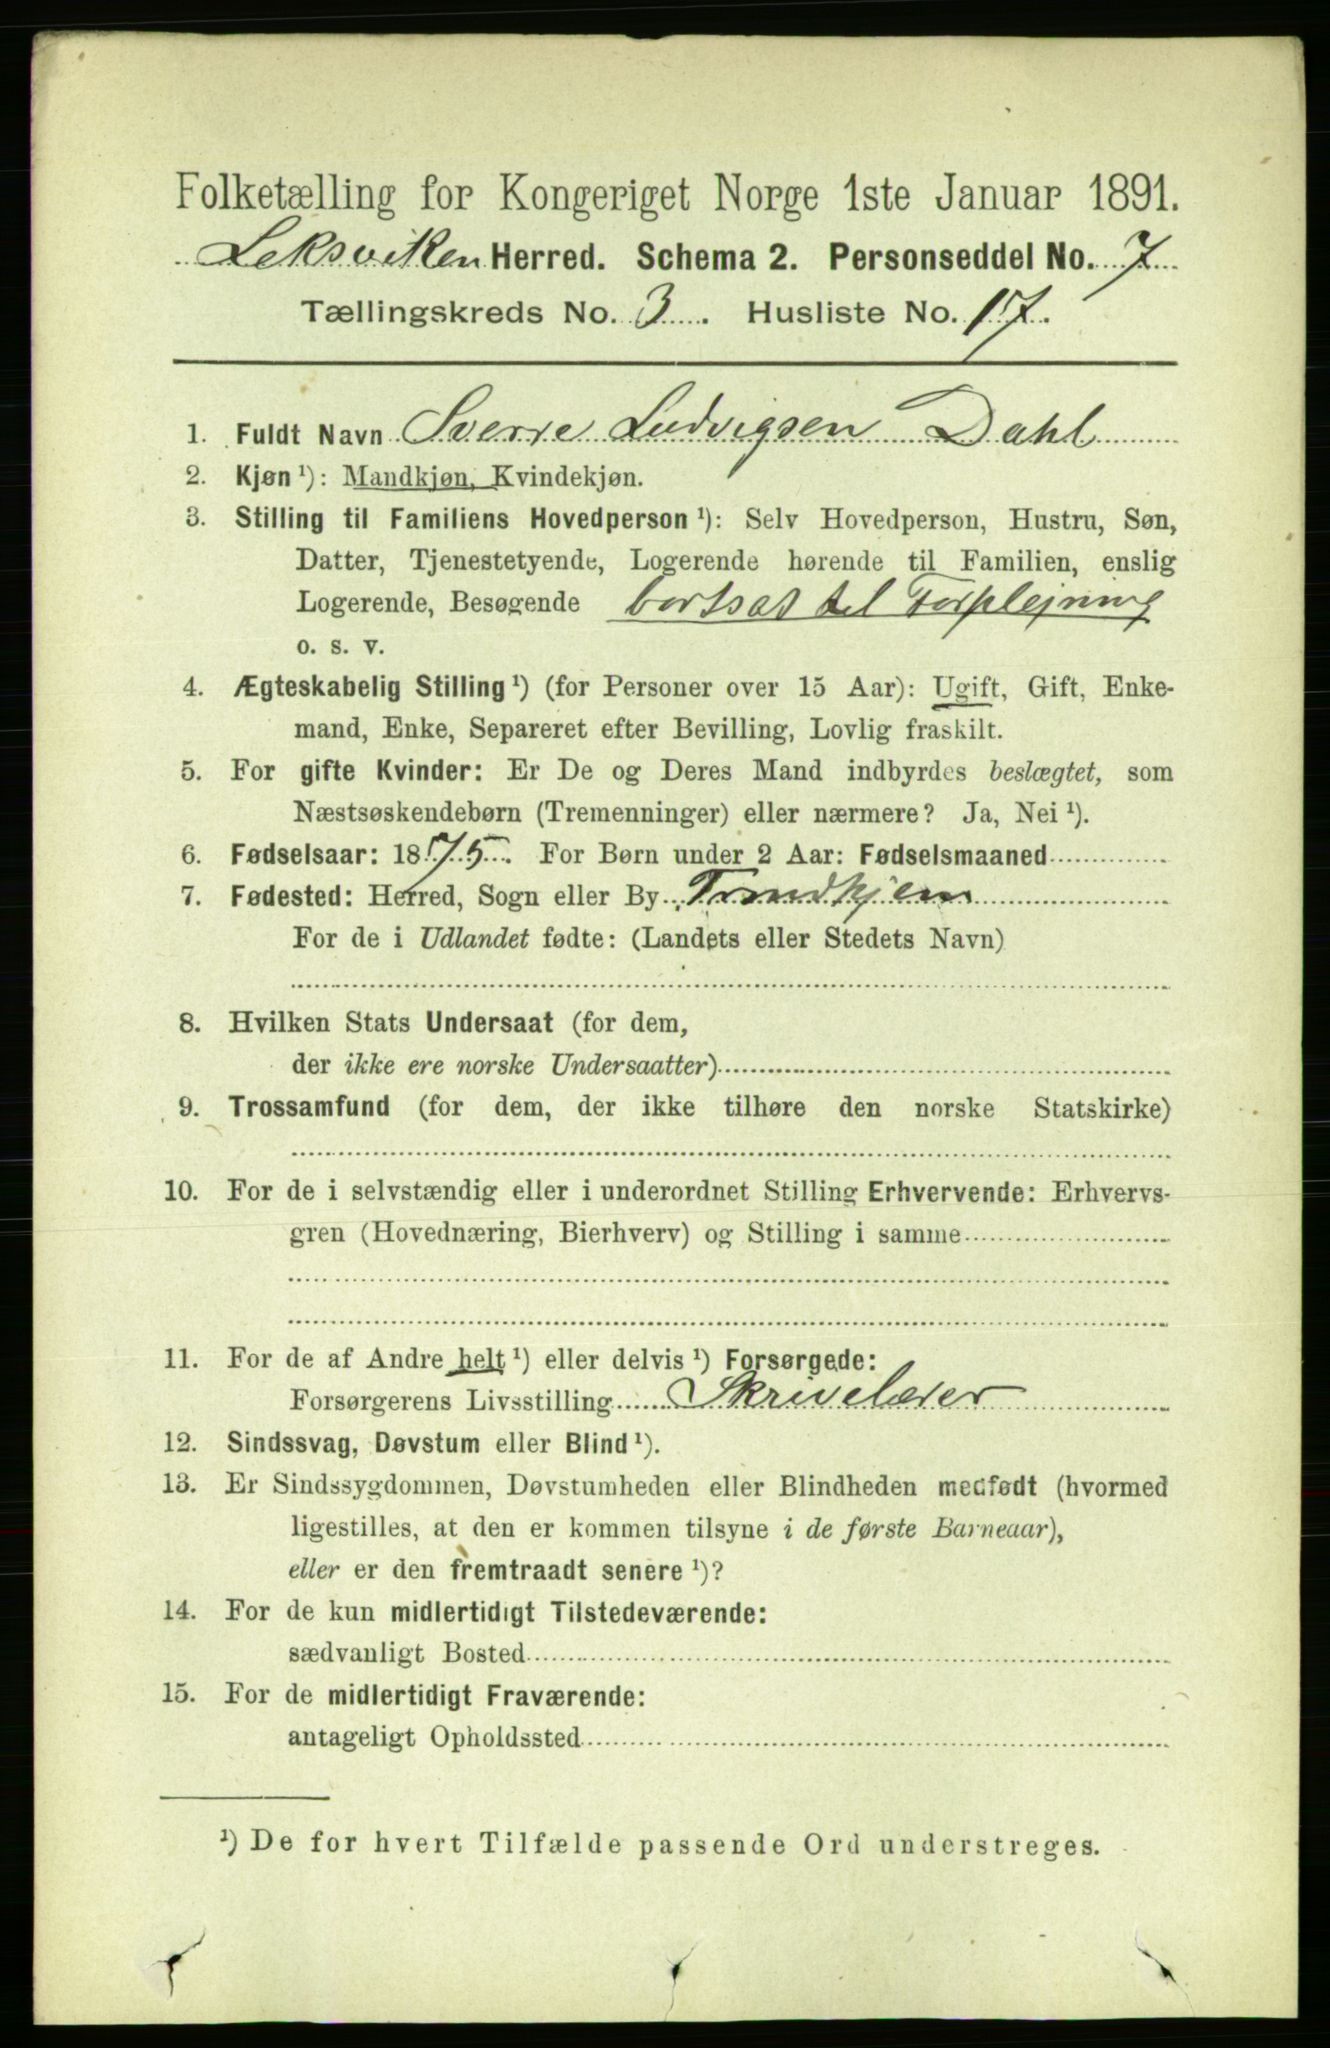 Folketælling for Kongeriget Norge 1ste Januar 1891.
Leksviken Herred. Schema 2. Personseddel No. 7
Tællingskreds No. 3. Husliste No. 17.
1. Fuldt Navn Sverre Ludvigsen Dahl
2. Kjøn ¹): Mandkjøn, Kvindekjøn.
3. Stilling til Familiens Hovedperson ¹): Selv Hovedperson, Hustru, Søn,
Datter, Tjenestetyende, Logerende hørende til Familien, enslig
Logerende, Besøgende bortsat til Forplejning
o. s. v.
4. Ægteskabelig Stilling ¹) (for Personer over 15 Aar): Ugift, Gift, Enke-
mand, Enke, Separeret efter Bevilling, Lovlig fraskilt.
5. For gifte Kvinder: Er De og Deres Mand indbyrdes beslægtet, som
Næstsøskendebørn (Tremenninger) eller nærmere? Ja, Nei ¹).
6. Fødselsaar: 1875. For Børn under 2 Aar: Fødselsmaaned
7. Fødested: Herred, Sogn eller By Trondhjem
For de i Udlandet fødte: (Landets eller Stedets Navn)
8. Hvilken Stats Undersaat (for dem,
der ikke ere norske Undersaatter)
9. Trossamfund (for dem, der ikke tilhøre den norske Statskirke)
10. For de i selvstændig eller i underordnet Stilling Erhvervende: Erhvervs-
gren (Hovednæring, Bierhverv) og Stilling i samme
11. For de af Andre helt ¹) eller delvis ¹) Forsørgede:
Forsørgerens Livsstilling Skrivelærer
12. Sindssvag, Døvstum eller Blind ¹).
13. Er Sindssygdommen, Døvstumheden eller Blindheden medfødt (hvormed
ligestilles, at den er kommen tilsyne i de første Barneaar),
eller er den fremtraadt senere ¹)?
14. For de kun midlertidigt Tilstedeværende:
sædvanligt Bosted
15. For de midlertidigt Fraværende:
antageligt Opholdssted
¹) De for hvert Tilfælde passende Ord understreges.